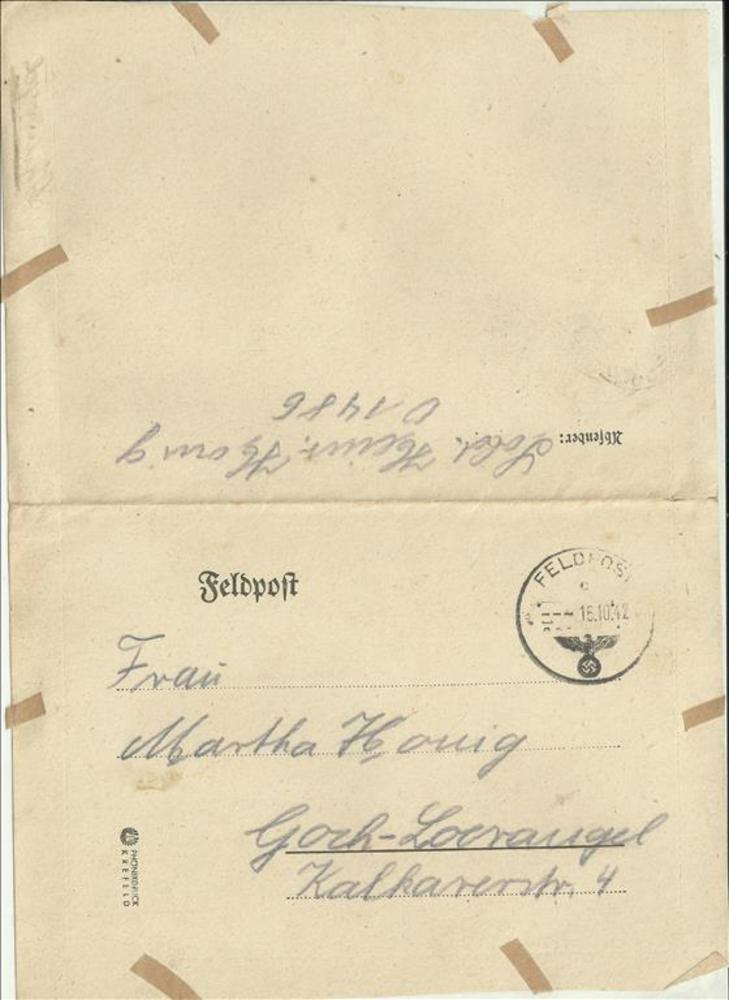 Absender: Sold. Heinr. Honig
01486
Feldpost
FELDPOST
c
16.10.42
Frau
Martha Honig
Goch-Loevangel
Kalkarerstr. 4
PHÖNIXDRUCK
KREFELD